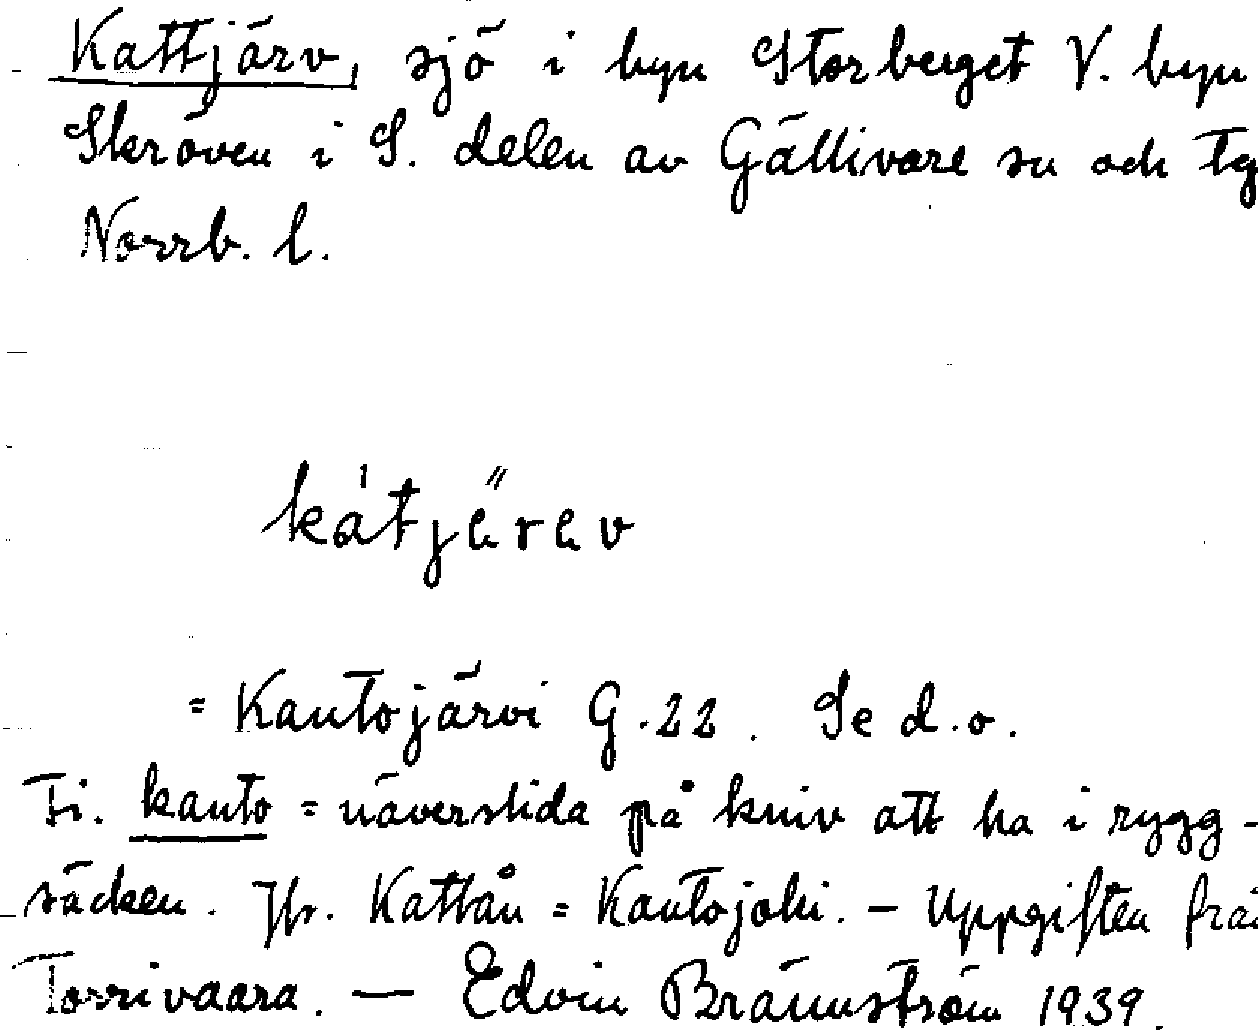 Kattjärv, sjö i byn Storberget V. byn
Skröven i S. delen av Gällivare sn och tg
Norrb. l.
kátjärav
= Kantojärvi G.22. Se d.o.
Fi. kanto = näverslida på kniv att ha i rygg-
säcken. Jfr. Kattån = Kantojoki. - Uppgiften från
Torrivaara. — Edvin Brännström 1939.